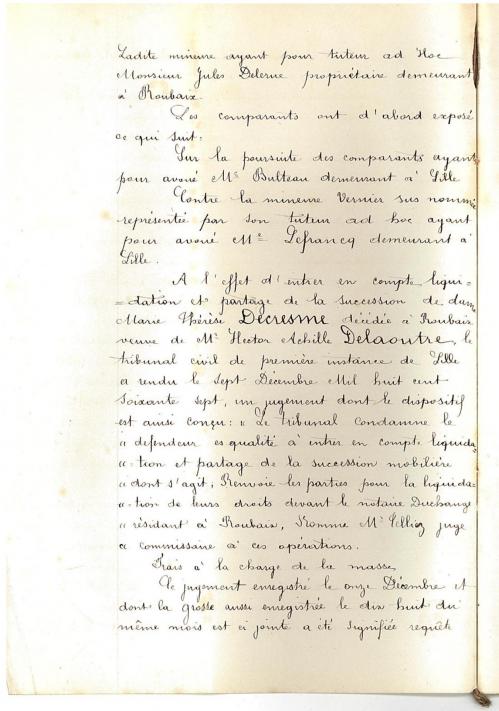 Ladite mineure ayant pour tuteur ad Hoc
Monsieur Jules Delerue propriétaire demeurant
à Roubaix.
Les comparants ont d'abord exposé
ce qui suit:
Sur la poursuite des comparants ayant
pour avoué Me Bulteau demeurant à Lille
Contre la mineure Vernier sus nommée
représentée par son tuteur ad hoc ayant
pour avoué Me Lefrancq demeurant à
Lille.
A l'effet d'entrer en compte liqui-
=dation et partage de la succession de dame
Marie Thérèse Decresme décédée à Roubaix
veuve de Mr Hector Achille Delaoutre, le
tribunal civil de première instance de Lille
a rendu le sept Décembre Mil huit cent
soixante sept, un jugement dont le dispositif
est ainsi conçu: « Le tribunal condamne le
« défendeur es qualité à entrer en compte liquida-
« tion et partage de la succession mobilière
« dont s'agit, Renvoie les parties pour la liquida-
« tion de leurs droits devant le notaire Duchange
« résidant à Roubaix, Nomme Mr juge
« commissaire à ces opérations.
Frais à la charge de la masse,
Ce jugement enregistré le onze Décembre et
dont la grosse aussi enregistrée le dix huit du
même mois est ci jointe a été signifiée requête